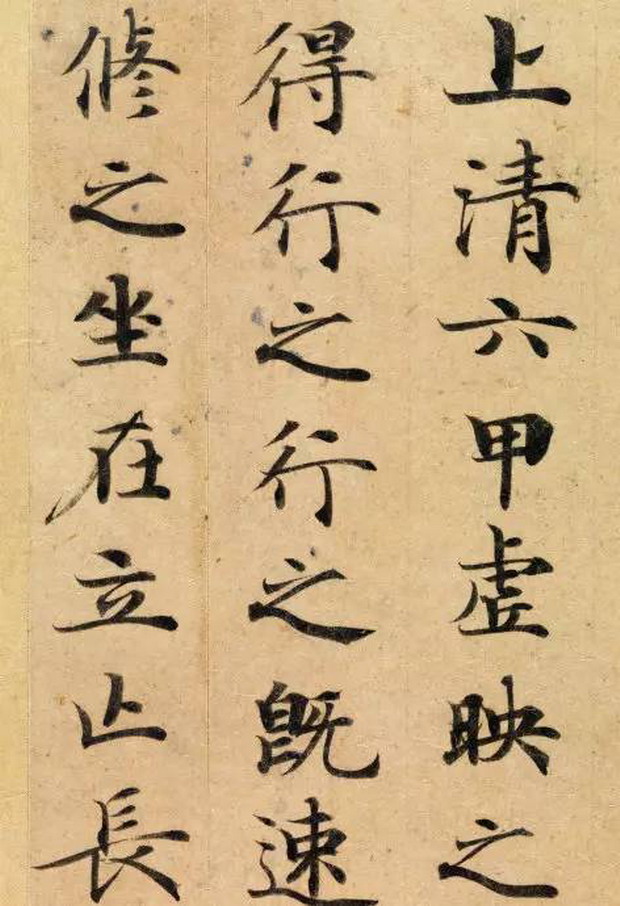 上清六甲虛映之
得行之行之既速
脩之坐在立止長